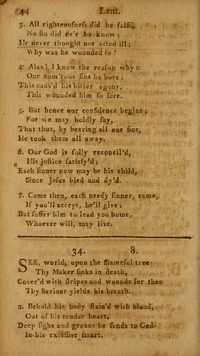 44 Lent.
3. All righteousness did he fulfil,
No sin did e'r he know;
He never thought nor acted ill;
Why was he wounded so?
4. Alas! I know the reason why:
Our num'rous sins he bore;
This caus'd his bitter agony,
This wounded him so sore.
5. But hence our confidence begins;
For we may boldly say,
That thus, by bearing all our sins,
He took them all away.
6. Our God is fully reconcil'd,
His justice satisfy'd;
Each sinner now may be his child,
Since Jesus bled and dy'd.
7. Come then, each needy sinner, come,
If you'll accept, he'll give;
But suffer him to lead you home,
Whoever will, may live.
34. 8.
SEE, world, upon the shameful tree
Thy Maker sinks in death,
Cover'd with stripes and wounds for thee
Thy Saviour yields his breath.
2. Behold his body stain'd with blood,
Out of his tender heart,
Deep sighs and groans he sends to God
In his excessive smart.